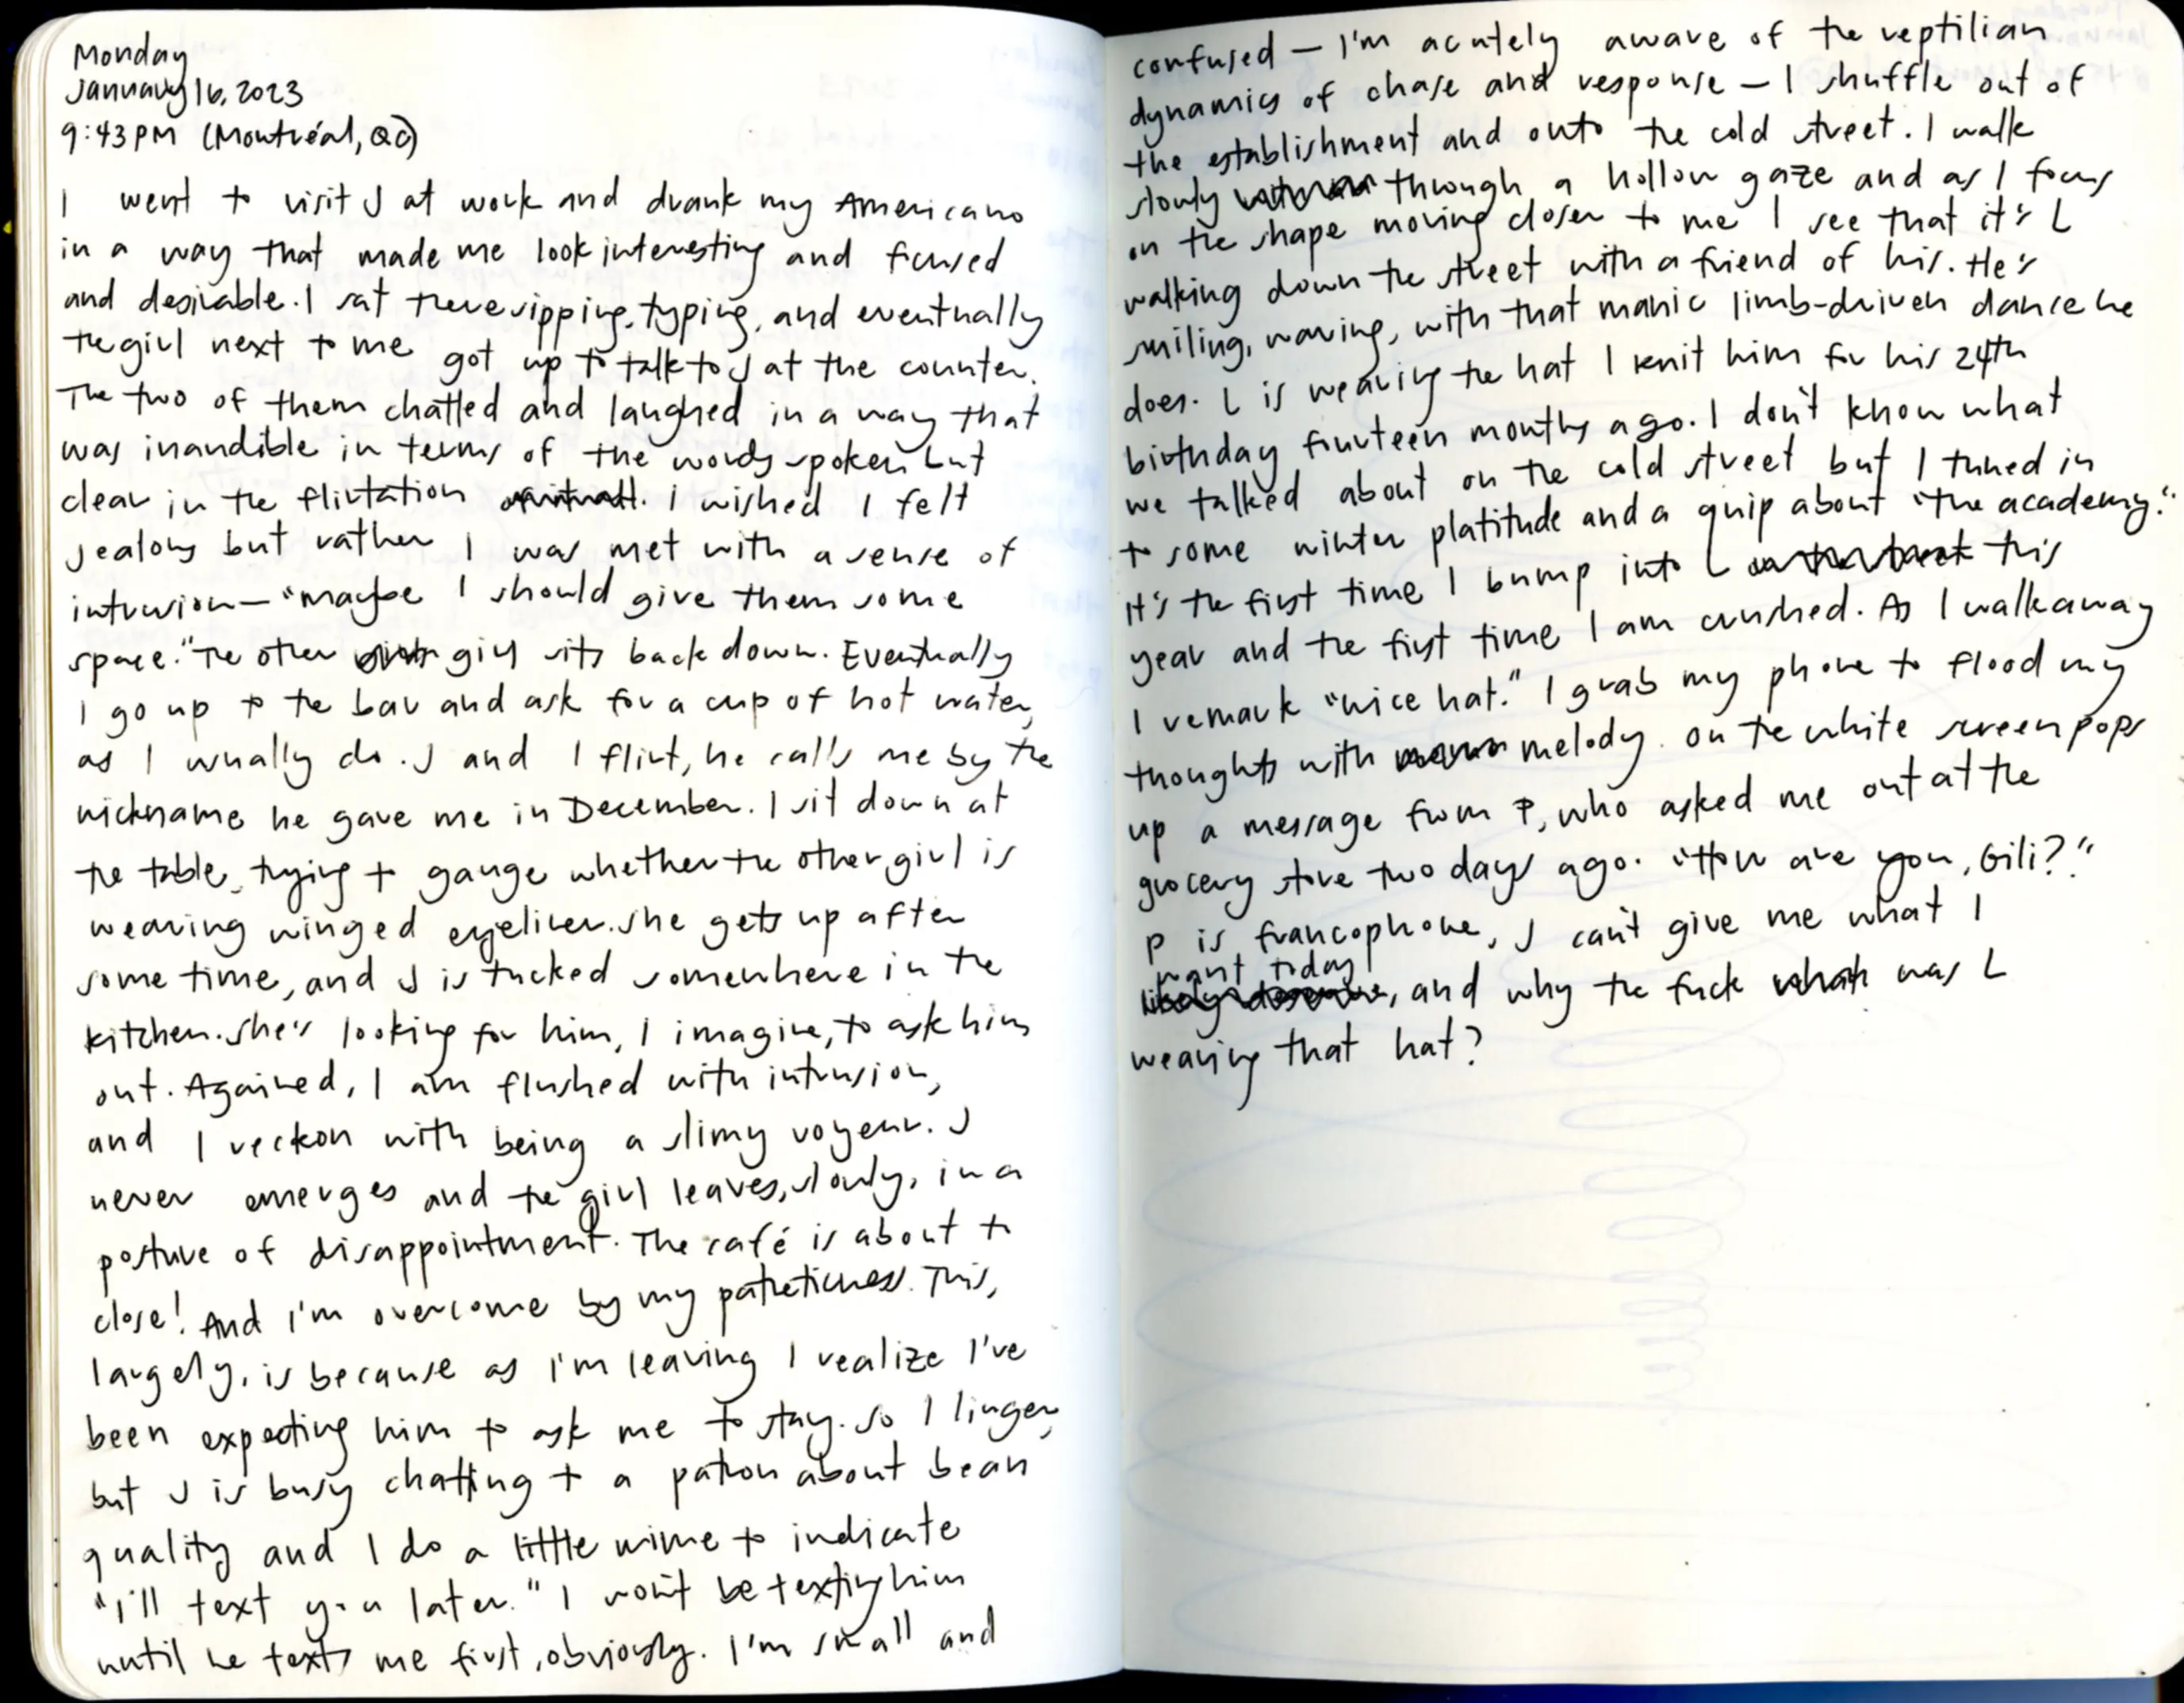 Monday
January 16, 2023
9:43 PM (Montréal, QC)
I went to visit J at work and drank my Americano
in a way that made me look interesting and focused
and desirable. I sat there sipping, typing, and eventually
the girl next to me got up to talk to J at the counter.
The two of them chatted and laughed in a way that
was inaudible in terms of the words spoken but
clear in the flirtation I wished I felt
jealous but rather I was met with a sense of
intrusion — "maybe I should give them some
space." The other girl sits back down. Eventually
I go up to the bar and ask for a cup of hot water,
as I usually do. J and I flirt, he calls me by the
nickname he gave me in December. I sit down at
the table, trying to gauge whether the other girl is
wearing winged eyeliner. she gets up after
some time, and J is tucked somewhere in the
kitchen. she's looking for him, I imagine, to ask him
out. Agained, I am flushed with intrusion,
and I reckon with being a slimy voyeur. J
never emerges and the girl leaves, slowly, in a
posture of disappointment. The café is about to
close! And I'm overcome by my patheticness. This,
largely, is because as I'm leaving I realize I've
been expecting him to ask me to stay. So I linger,
but J is busy chatting to a patron about bean
quality and I do a little mime to indicate
"I'll text you later." I won't be texting him
until he texts me first, obviously. I'm small and
confused — I'm acutely aware of the reptilian
dynamics of chase and response — I shuffle out of
the establishment and onto the cold street. I walk
slowly through a hollow gaze and as I focus
on the shape moving closer to me I see that it's L
walking down the street with a friend of his. He's
smiling, waving, with that manic limb-driven dance he
does. L is wearing the hat I knit him for his 24th
birthday fourteen months ago. I don't know what
we talked about on the cold street but I tuned in
to some winter platitude and a quip about "the academy."
It's the first time I bump into L this
year and the first time I am crushed. As I walk away
I remark "nice hat." I grab my phone to flood my
thoughts with melody. On the white screen pops
up a message from P, who asked me out at the
grocery store two days ago. "How are you, Gili?"
P is francophone, J can't give me what I
want today
likely deserve, and why the fuck what was L
wearing that hat?